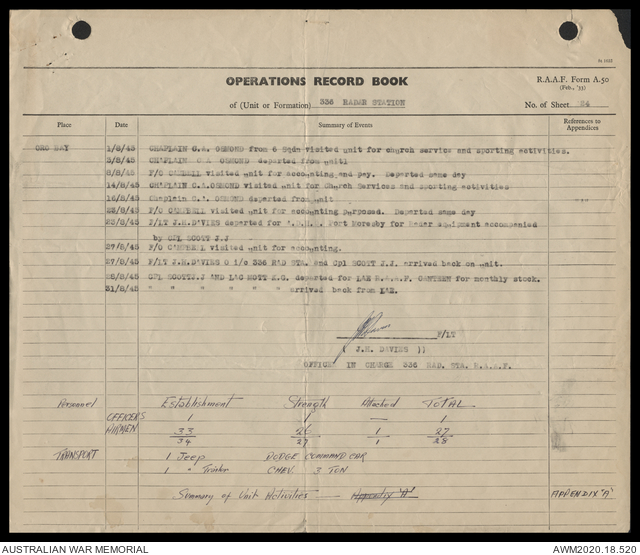 OPERATIONS RECORD BOOK
R.A.A.F. Form A.50
(Feb., '35)
of (Unit or Formation) 336 RADAR STATION
No. of Sheet 24
Place Date Summary of Events References to Appendices
ORO BAY 1/8/45 CHAPLAIN C.A. OSMOND from 6 Sqdn visited unit for church service and sporting activities.
3/8/45 CHAPLAIN C A OSMOND departed from unit
8/8/45 F/O CAMPBELL visited unit for accounting and pay. Departed same day
14/8/45 CHAPLAIN C.A.OSMOND visited unit for Church Services and sporting activities
16/8/45 Chaplein C.A. OSMOND departed from unit
22/8/45 F/O CAMPBELL visited unit for accounting purposed. Departed same day
23/8/45 F/LT J.H.DAVIES departed for Port Moresby for Radar equipment accompanied
by CPL SCOTT J.J
27/8/45 F/O CAMPBEL visited unit for accounting.
27/8/45 F/LT J.H.DAVIES O i/c 336 RAD STA. and Cpl SCOTT J.J. arrived back on unit.
28/8/45 CPL SCOTTJ.J AND LAC MOTT K.G. departed for LAE R.A.A.F. CANTEEN for monthly stock.
31/8/45 " " " " " " arrived back from LAE.
F/LT
( J.H. DAVIES ))
OFFICER IN CHARGE 336 RAD. STA. R.A.A.F.
Personnel Establishment Strength Attached TOTAL
OFFICERS 1 1 — 1
AIRMEN 33 26 1 27
34 27 1 28
TRANSPORT 1 Jeep DODGE COMMAND CAR
1 " Trailer CHEV. 3 TON
Summary of Unit Activities — Appendix 'A' APPENDIX 'A'
AUSTRALIAN WAR MEMORIAL AWM2020.18.520